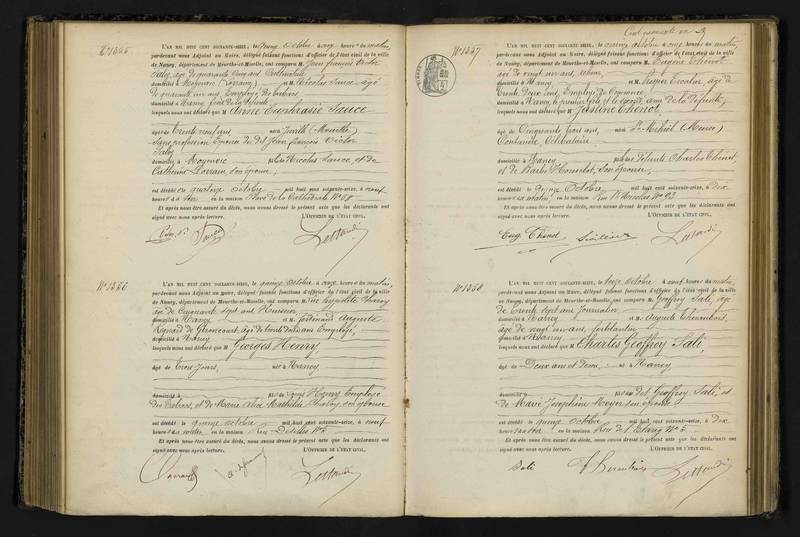 N° 1355
L'AN MIL HUIT CENT SOIXANTE-SEIZE, le quinze Octobre à onze heures du matin,
pardevant nous Adjoint au Maire, délégué faisant fonctions d'officier de l'état civil de la ville
de Nancy, département de Meurthe-et-Moselle, ont comparu M. Jean François Victor
Saley, âgé de quarante cinq ans
domicilié à Moyenvic (Lorraine) et M. Nicolas Sauce, âgé
de quarante un ans, Employé des
domicilié à Nancy, frère de la défunte
lesquels nous ont déclaré que M Anne Euphrasie Sauce
âgé de trente neuf ans né à Juville (Moselle)
sans profession Epouse de dit Jean François Victor
Saley
domicilié à Moyenvic fille de Nicolas Sauce, et de
Catherine Lorrain, son épouse,
est décédé le quatorze Octobre mil huit cent soixante-seize, à neuf
heures du soir en la maison Place de la Cathédrale N°
Et après nous être assuré du décès, nous avons dressé le présent acte que les déclarants ont
signé avec nous après lecture. L'OFFICIER DE L'ÉTAT CIVIL,
N° 1356
L'AN MIL HUIT CENT SOIXANTE-SEIZE, le quinze octobre à onze heures du matin,
pardevant nous Adjoint au Maire, délégué faisant fonctions d'officier de l'état civil de la ville
de Nancy, département de Meurthe-et-Moselle, ont comparu M. Luc hypolite
âgé de Cinquante sept ans
domicilié à Nancy et M. Ferdinand Auguste
âgé de trente ans Employé,
domicilié à Nancy
lesquels nous ont déclaré que M Georges Henry,
âgé de trois jours, né à Nancy
domicilié à fils de Henry Employé
des Tabacs, et de Marie Mathilde son épouse
est décédé le quinze octobre mil huit cent soixante-seize, à neuf
heures du matin en la maison rue N° 5
Et après nous être assuré du décès, nous avons dressé le présent acte que les déclarants ont
signé avec nous après lecture. L'OFFICIER DE L'ÉTAT CIVIL,
N° 1357
L'AN MIL HUIT CENT SOIXANTE-SEIZE, le quinze octobre à onze heures du matin,
pardevant nous Adjoint au Maire, délégué faisant fonctions d'officier de l'état civil de la ville
de Nancy, département de Meurthe-et-Moselle, ont comparu M. Eugène Thénot
âgé de vingt un ans,
domicilié à Nancy et M. âgé de
trente deux ans, Employé de Commerce
domicilié à Nancy, le premier fils et le second ami de la défunte,
lesquels nous ont déclaré que M Justine Thénot,
âgé de Cinquante trois ans, né à St Mihiel (Meuse)
Couturière, Célibataire
domicilié à Nancy fille de défunts Charles Thénot,
et de Barbe son épouse
est décédé le quinze Octobre mil huit cent soixante-seize, à dix
heures du matin en la maison Rue St Nicolas N° 93
Et après nous être assuré du décès, nous avons dressé le présent acte que les déclarants ont
signé avec nous après lecture. L'OFFICIER DE L'ÉTAT CIVIL,
Eug. Thénot
N° 1358
L'AN MIL HUIT CENT SOIXANTE-SEIZE, le seize octobre à neuf heures du matin,
pardevant nous Adjoint au Maire, délégué faisant fonctions d'officier de l'état civil de la ville
de Nancy, département de Meurthe-et-Moselle, ont comparu M. Geoffroy Sali, âgé
de trente sept ans Journalier
domicilié à Nancy et M. Auguste
âgé de vingt un ans, ferblantier
domicilié à Nancy
lesquels nous ont déclaré que M Charles Geoffroy Sali,
âgé de Deux ans et demi, né à Nancy
domicilié à fils de dit Geoffroy Sali, et
de Marie Joséphine Meyer son épouse
est décédé le quinze octobre mil huit cent soixante-seize, à dix
heures du soir en la maison Rue de l'Etang N° 3
Et après nous être assuré du décès, nous avons dressé le présent acte que les déclarants ont
signé avec nous après lecture. L'OFFICIER DE L'ÉTAT CIVIL,
Sali